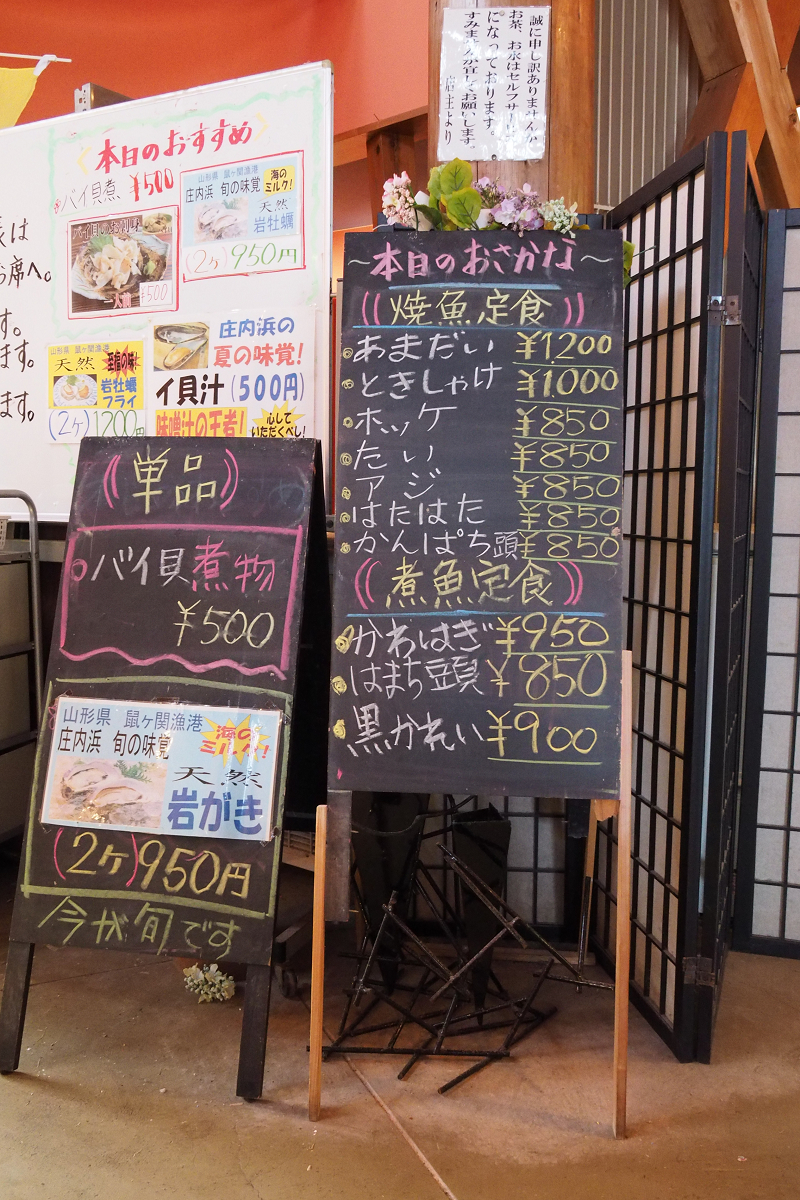 誠に申し訳ありませんが
お茶、お水はセルフサー
になっております。
すみませんが宜しくお願いします。
店主より
本日のおすすめ
バイ貝煮 ¥500
バイ貝のお刺味
一人前 ¥500
山形県 鼠ヶ関漁港
庄内浜 旬の味覚
海のミルク!
天然
岩牡蠣
(2ヶ)950円
は
お席へ。
す。
ます。
ます。
山形県 鼠ヶ関漁港
天然
至福の味!
岩牡蠣
フライ
(2ヶ)1200円
庄内浜の
夏の味覚!
イ貝汁(500円)
味噌汁の王者!
心して
いただくべし!
~本日のおさかな~
((焼魚定食))
あまだい ¥1200
ときしゃけ ¥1000
ホッケ ¥850
たい ¥850
アジ ¥850
はたはた ¥850
かんぱち頭 ¥850
((煮魚定食))
かわはぎ ¥950
はまち頭 ¥850
黒かれい ¥900
((単品))
バイ貝煮物
¥500
山形県 鼠ヶ関漁港
庄内浜 旬の味覚
海の
ミルク!
天然
岩がき
(2ヶ)950円
今が旬です